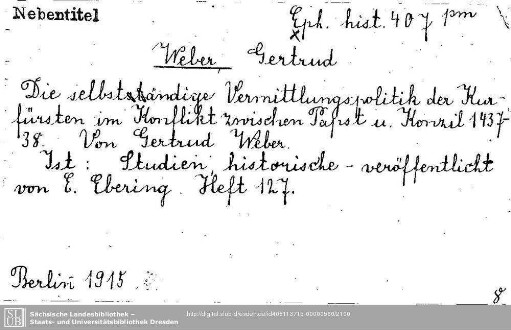 Nebentitel
Eph. hist. 407 pm
Weber, Gertrud
Die selbstständige Vermittlungspolitik der Kur-
fürsten im Konflikt zwischen Papst u. Konzil 1437-
38. Von Gertrud Weber.
Ist: Studien, historische - veröffentlicht
von E. Ebering. Heft 127.
Berlin 1915.
8
SLUB
Sächsische Landesbibliothek –
Staats- und Universitätsbibliothek Dresden